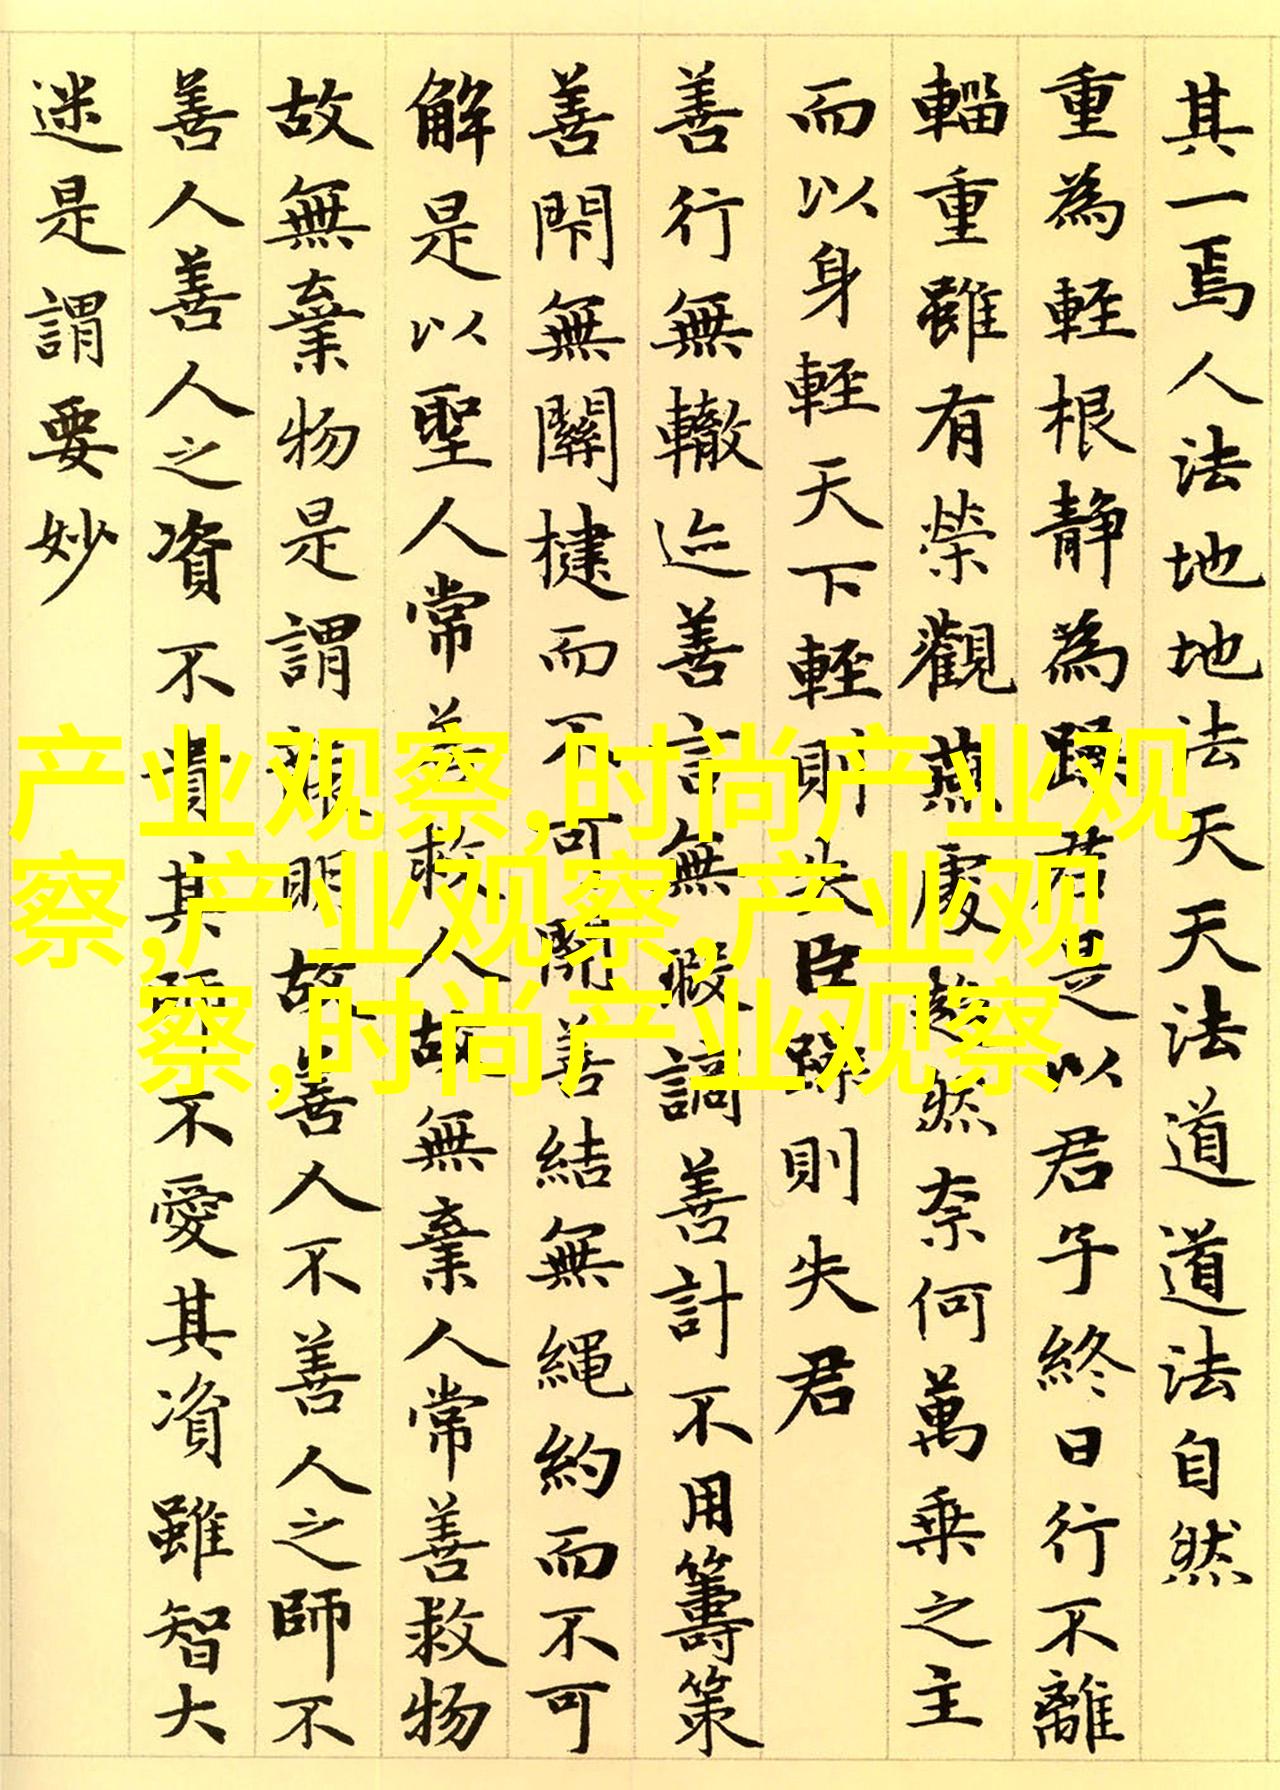 其一焉人法地地法天天法道道法自然
重為輕根静為躁君是以君子終日行不離
輜重雖有榮觀燕處超然奈何萬乘之主
而以身輕天下輕則失臣躁則失君
善行無轍迹善言無瑕謫善計不用籌策
善閇無關楗而不可開善結無繩約而不可
解是以聖人常善救人故無棄人常善救物
故無棄物是謂襲明故善人不善人之師不
善人善人之資不貴其師不愛其資雖智大
迷是謂要妙
产业观察,时尚产业观
察,产业观察,产业观
察,时尚产业观察